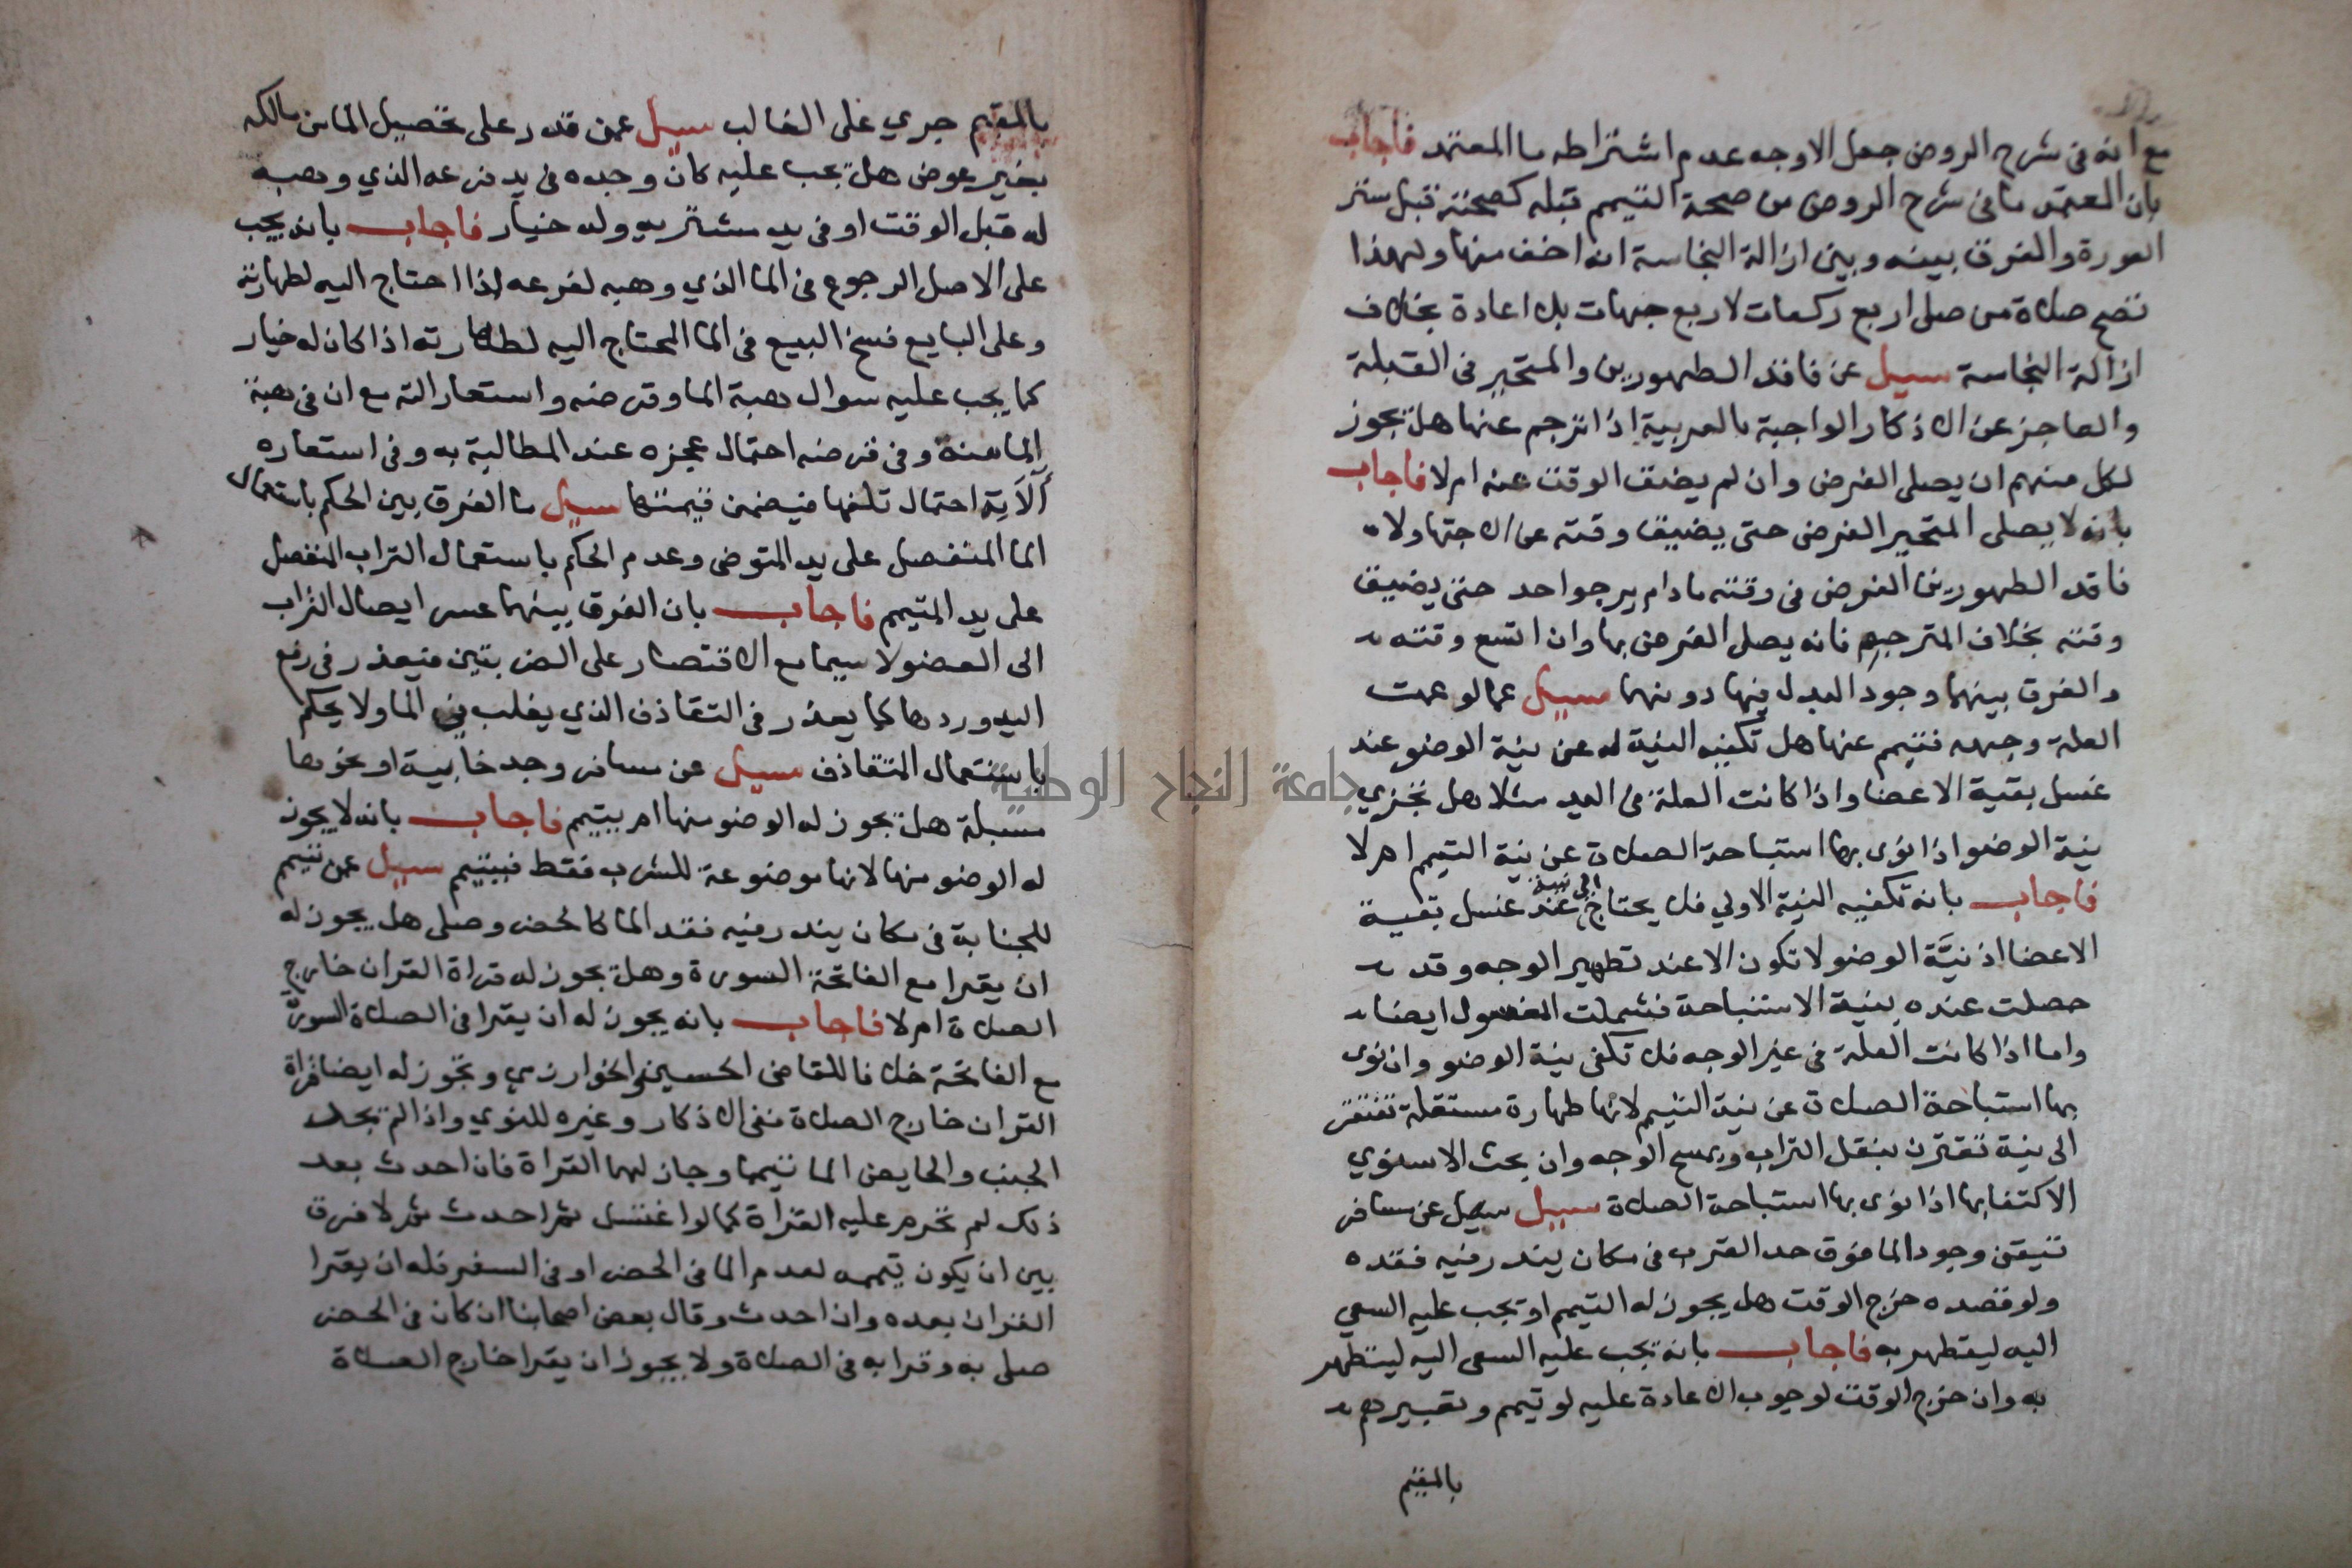 مع انه في شرح الروض جعل الاوجه عدم اشتراطه ما المعتمد فاجاب
بان المعتمد ما في شرح الروض من صحة التيمم قبله كصحته قبل ستر
العورة والفرق بينه وبين ازالة النجاسة انه اخف منها ولهذا
تصح صلاة من صلى اربع ركعات لاربع جهات بلا اعادة بخلاف
ازالة النجاسة سيل عن فاقد الطهورين والمتحير في القبلة
والعاجز عن الاذكار الواجبة بالعربية اذا ترجم عنها هل يجوز
لكل منهم ان يصلي الفرض وان لم يضق الوقت عنه ام لا فاجاب
بانه لا يصلي المتحير الفرض حتى يضيق وقته عن الاجتهاد ولا
فاقد الطهورين الفرض في وقته مادام يرجو احد حتى يضيق
وقته بخلاف المترجم فانه يصلي الفرض بها وان اتسع وقته
والفرق بينهما وجود البدل فيها دونهما سيل عما لو عمت
العلة وجهه فتيمم عنها هل تكفيه النية له عن نية الوضو عند
غسل بقية الاعضا واذا كانت العلة في اليد مثلا هل تجزي
نية الوضو اذا نوى بها استباحة الصلاة عن نية التيمم ام لا
فاجاب بانه تكفيه النية الاولي فلا يحتاج الى نية عند غسل بقية
الاعضا اذ نيَّة الوضو لا تكون الا عند تطهير الوجه وقد
حصلت عنده بنية الاستباحة فشملت المغسول ايضا
واما اذا كانت العلة في غير الوجه فلا تكفي نية الوضو وان نوى
بها استباحة الصلاة عن نية التيمم لانها طهارة مستقلة تفتقر
الى نية تقترن بنقل التراب وبمسح الوجه وان بحث الاسنوي
الاكتفا بها اذا نوى بها استباحة الصلاة سيل سيل عن مسافر
تيقن وجود الما فوق حد القرب في مكان يندر فيه فقده
ولو قصده خرج الوقت هل يجوز له التيمم او يجب عليه السعي
اليه ليتطهر به فاجاب بانه يجب عليه السعي اليه ليتطهر
به وان خرج الوقت لوجوب الاعادة عليه لو تيمم وتعبيرهم
بالمقيم
بالمقيم جري على الغالب سيل عمن قدر على تحصيل الما من مالكه
بغير عوض هل يجب عليه كان وجده في يد فرعه الذي وهبه
له قبل الوقت او في يد مشتريه وله خيار فاجاب بانه يجب
على الاصل الرجوع في الما الذي وهبه لفرعه اذا احتاج اليه لطهارته
وعلى البايع فسخ البيع في الما المحتاج اليه لطهارته اذا كان له خيار
كما يجب عليه سوال هبة الما وقرضه واستعارة الته مع ان في هبة
الما منة وفي قرضه احتمال عجزه عند المطالبة به وفي استعاره
الآلة احتمال تلفها فيضمن قيمتها سيل ما الفرق بين الحكم باستعمال
الما المنفصل على يد المتوضي وعدم الحكم باستعمال التراب المنفصل
على يد المتيمم فاجاب بان الفرق بينهما عسر ايصال التراب
الى العضو لا سيما مع الاقتصار على الضربتين فيعذر في رفع
اليد وردها كما يعذر في التقاذف الذي يغلب في الما ولا يحكم
باستعمال المتقاذف سيل عن مسافر وجد خابية او نحوها
مسبلة هل يجوز له الوضو منها ام يتيمم فاجاب بانه لا يجوز
له الوضو منها لانها موضوعة للشرب فقط فيتيمم سيل عمن تيمم
للجنابة في مكان يندر فيه فقد الما كالحضر وصلى هل يجوز له
ان يقرا مع الفاتحة السورة وهل يجوز له قراة القران خارج
الصلاة ام لا فاجاب بانه يجوز له ان يقرا في الصلاة السورة
مع الفاتحة خلافا للقاضي الحسين والخوارزمي وتجوز له ايضا قراة
القران خارج الصلاة ففي الاذكار وغيره للنووي واذا لم تجد
الجنب والحايض الما تيمما وجاز لهما القراة فان احدث بعد
ذلك لم تحرم عليه القراة كما لو اغتسل ثم احدث ثم لا فرق
بين ان يكون تيممه لعدم الما في الحضر او في السفر فله ان يقرا
القران بعده وان احدث وقال بعض اصحابنا ان كان في الحضر
صلى به وقرا به في الصلاة ولا يجوز ان يقرا خارج الصلاة
جامعة النجاح الوطنية